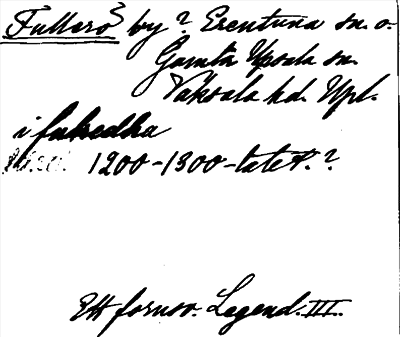 Fullerö by ? Ärentuna sn. o.
Gamla Upsala sn.
Vaksala hd. Upl.
i fulredha
1200-1300-talet. ?
Ett fornsv. Legend. III.